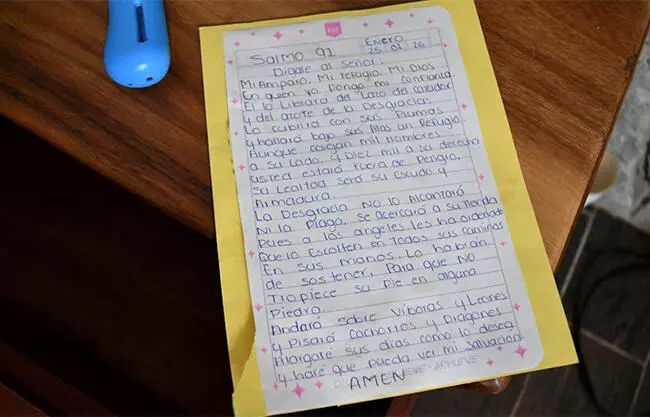 Salmo 91
Enero
25 01 26
Digale al Señor:
Mi Amparo, Mi refugio, Mi Dios
En quien yo Pongo mi confianza.
El lo Librara del Lazo del cazador
y del azote de la Desgracia;
Lo cubrira con sus Plumas
y hallara bajo sus Alas un Refugio
Aunque caigan mil Hombres
a su Lado, y Diez mil a su derecha
Usted estará Fuera de Peligro,
Su Lealtad será su Escudo y
Armadura.
La Desgracia No lo Alcanzará
Ni la Plaga se Acercará a su Tienda
Pues a los angeles les ha ordenado
Que lo Escolten en Todos sus caminos
En sus manos Lo habran
de sostener, Para que NO
Tropiece su Pie en alguna
Piedra.
Andará sobre Viboras y Leones
y Pisará Cachorros y Dragones
Alargaré sus días como lo desea
y haré que pueda ver mi salvación
AMEN
ACHIEVE